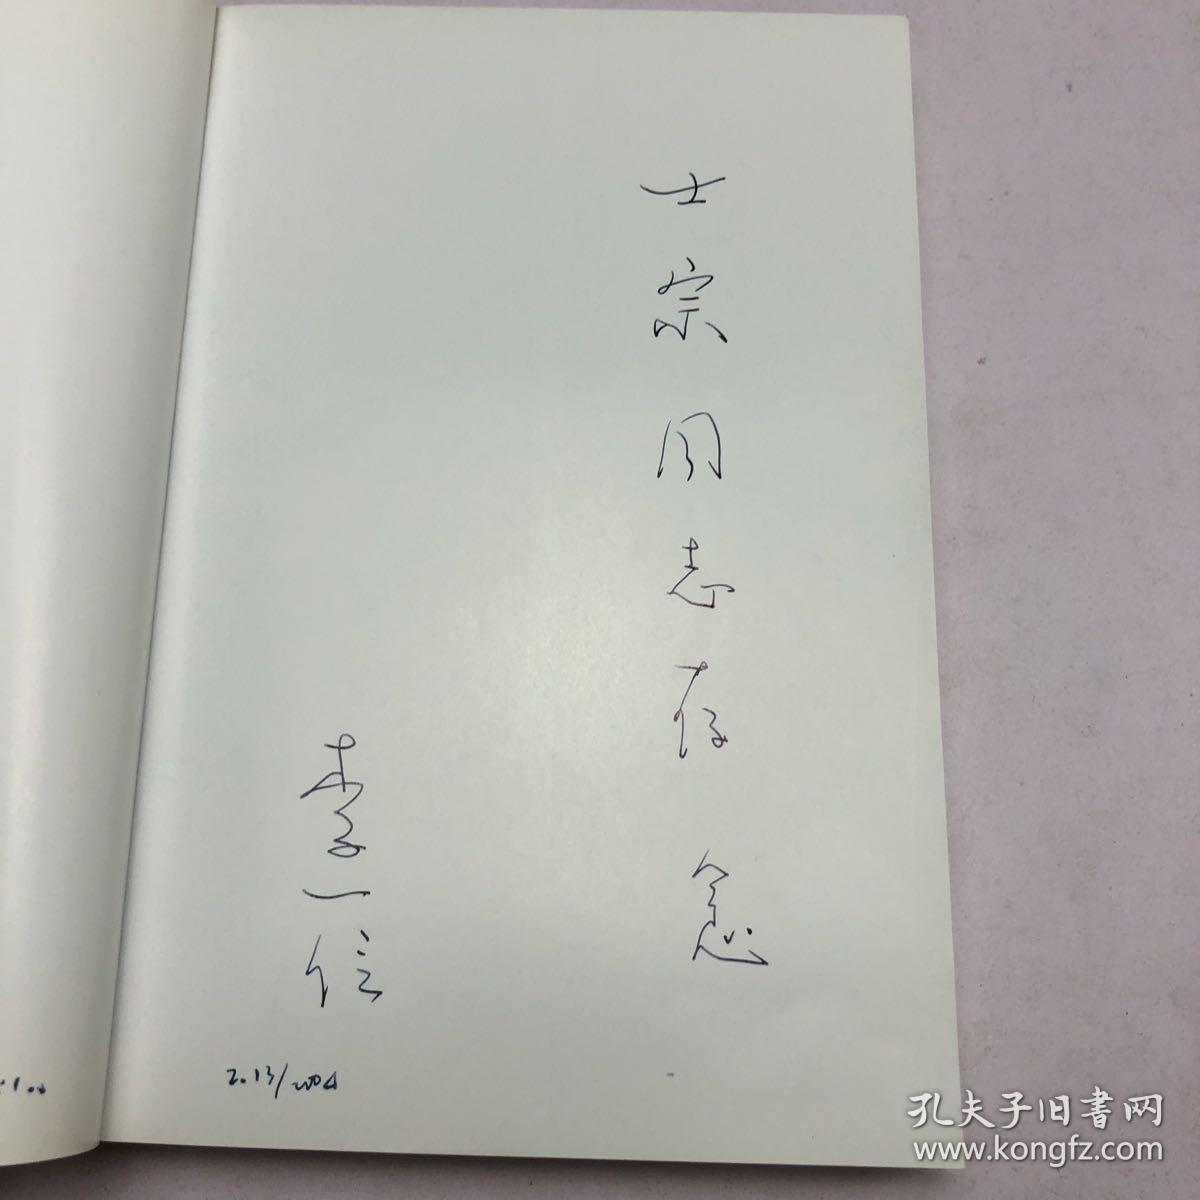 士宗同志存念
李一信
2.13/2004
孔夫子旧書网
www.kongfz.com